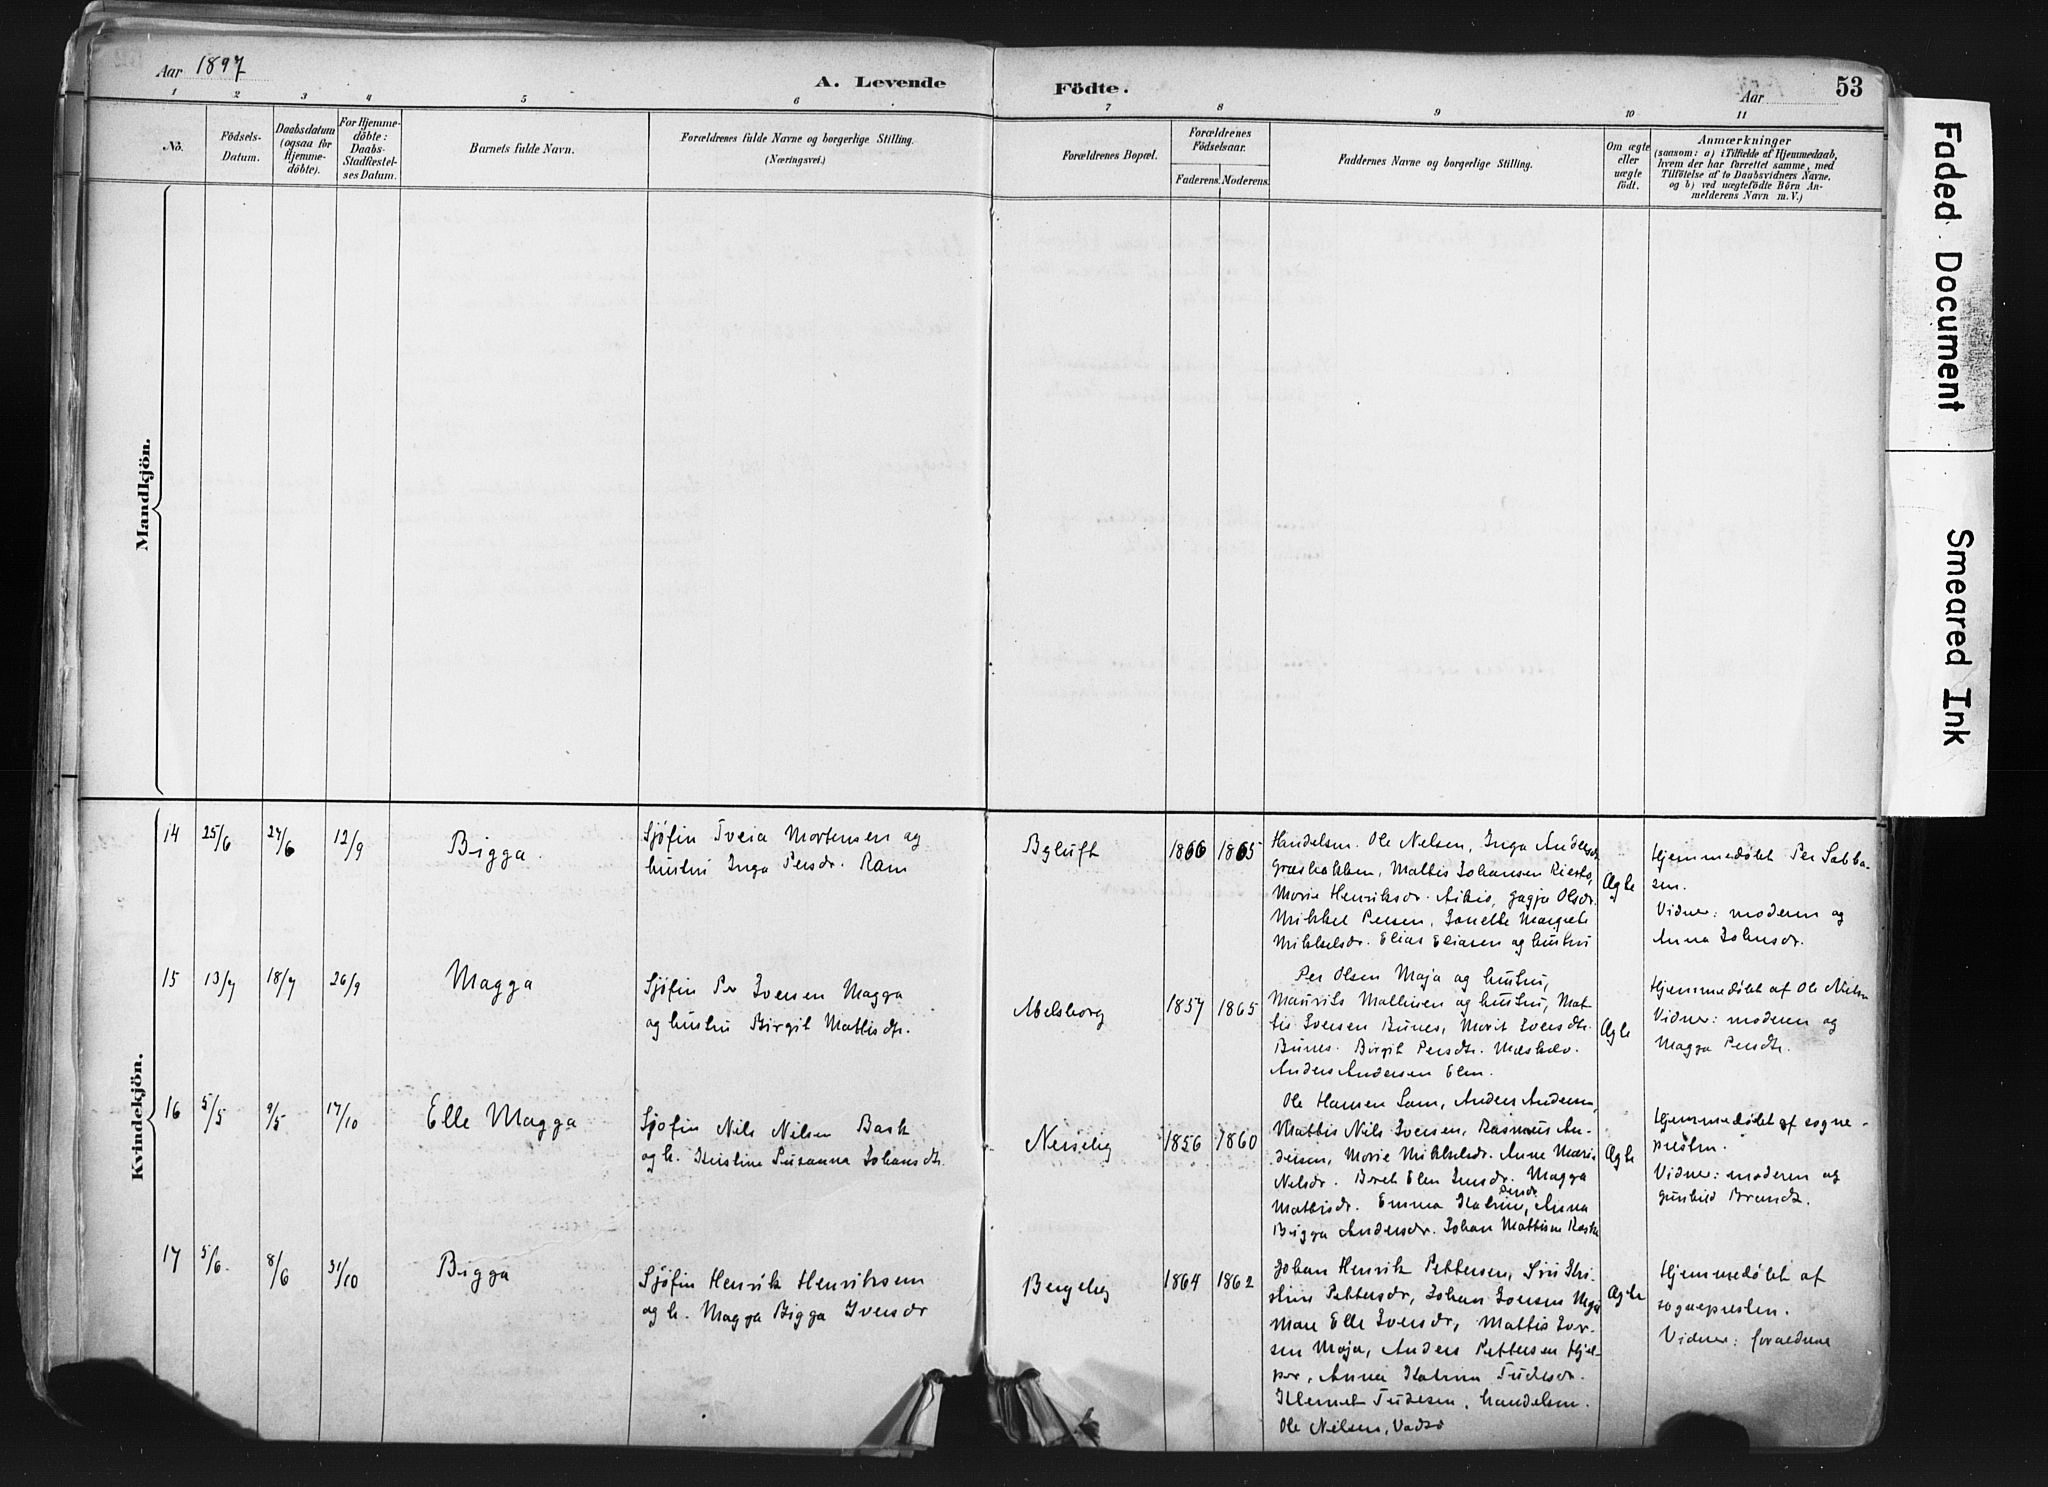 Aar 1897
A. Levende
Födte.
Aar
53
1 2 3 4 5 6 7 8 9 10 11
No.
Födsels-
Datum.
Daabsdatum
(ogsaa for
Hjemme-
döbte).
For Hjemme-
döbte:
Daabs-
Stadfæstel-
ses Datum.
Barnets fulde Navn.
Forældrenes fulde Navne og borgerlige Stilling.
(Næringsvei.)
Forældrenes Bopæl.
Forældrenes
Födselsaar.
Faderens. Moderens.
Faddernes Navne og borgerlige Stilling.
Om ægte
eller
uægte
födt.
Anmærkninger
(saasom: a) i Tilfælde af Hjemmedaab,
hvem der har forrettet samme, med
Tilföielse af to Daabsvidners Navne,
og b) ved uægtefödte Börn An-
melderens Navn m. V.)
Faded Document
Smeared Ink
Mandkjön.
Kvindekjön.
14 25/6 27/6 12/9
Bigga.
Sjøfin Tveia Mortensen og
hustru Inga Persdr. Ram
Byluft
1866 1865
Handelsm. Ole Nelsen, Inga Andersdr.
Græsbakken, Mattis Johansen Riesto,
Marie Henriksdr. Aikio, Gagja Olsdr.
Mikkel Persen, Janette Margrete
Mikkelsdr. Elias Eliasen og hustru
Ægte
Hjemmedøbt Per Sabba-
sen.
Vidner: moderen og
Anna Johnsdr.
15 13/7 18/7 26/9
Magga
Sjøfin Per Iversen Magga
og hustru Birgit Mattisdtr.
Abelsborg
1857 1865
Per Olsen Maja og hustru,
Maurits Mathisen og hustru, Mat-
tis Iversen Bunes, Marit Iversdtr.
Bunes. Birgit Persdtr. Mæskelv.
Anders Andersen Elm.
Ægte
Hjemmedøbt af Ole Nilsen
Vidner: moderen og
Magga Persdtr.
16 5/5 9/5 17/10
Elle Magga
Sjøfin Nils Nilsen Bask
og h. Kristine Susanna Johansdtr.
Nesseby
1856 1860
Ole Hansen Sam, Anders Andersen,
Mattis Nils Iversen, Rasmus An-
dersen, Marie Mikkelsdr. Anne Marie
Nelsdr. Beret Elen Jensdr. Magga
Mattisdr. Emma Katrine Persdr, Anna
Bigga Andersdr. Johan Mattisen Raske
Ægte
Hjemmedøbt af sogne-
presten.
Vidner: moderen og
Gunhild Brandt.
17 5/6 8/6 31/10
Bigga
Sjøfin Henrik Henriksen
og h. Magga Bigga Iversdr
Bergeby
1864 1862
Johan Henrik Pettersen, Siri Kri-
stine Pettersdr, Johan Iversen Maja
Mari Elle Iversdr, Mattis Iver-
sen Maja, Anders Pettersen Hjel-
per, Anna Katrina Tudesdr.
Klemet Tudesen, handelsm.
Ole Nelsen, Vadsø
Ægte
Hjemmedøbt af
sognepresten.
Vidner: forældrene